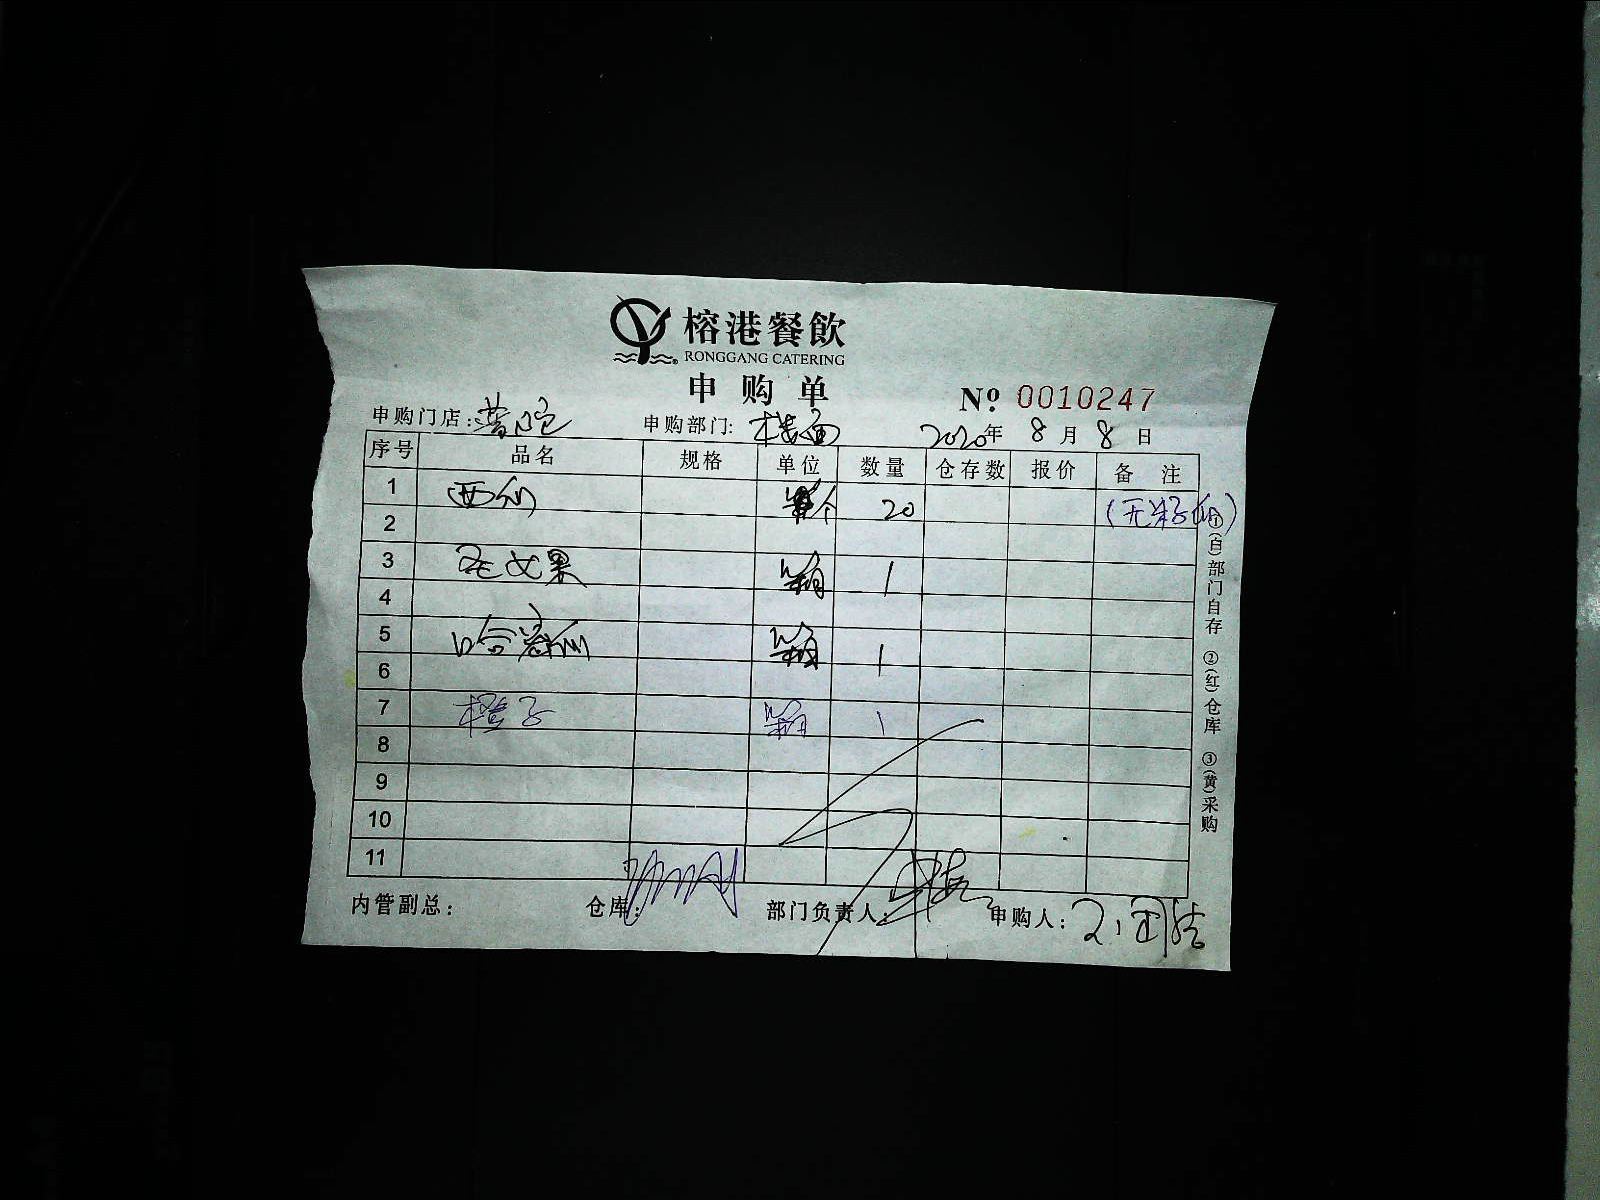 榕港餐飲
RONGGANG CATERING
申购单
No. 0010247
申购门店: 申购部门: 楼面 2020年 8月 8日
序号 品名 规格 单位 数量 仓存数 报价 备注
1 西瓜 个 20 (无籽的)
2
3 火果 箱 1
4
5 哈密瓜 箱 1
6
7 橙子 箱 1
8
9
10
11
内管副总: 仓库: 部门负责人: 申购人:
①(白)部门自存 ②(红)仓库 ③(黄)采购